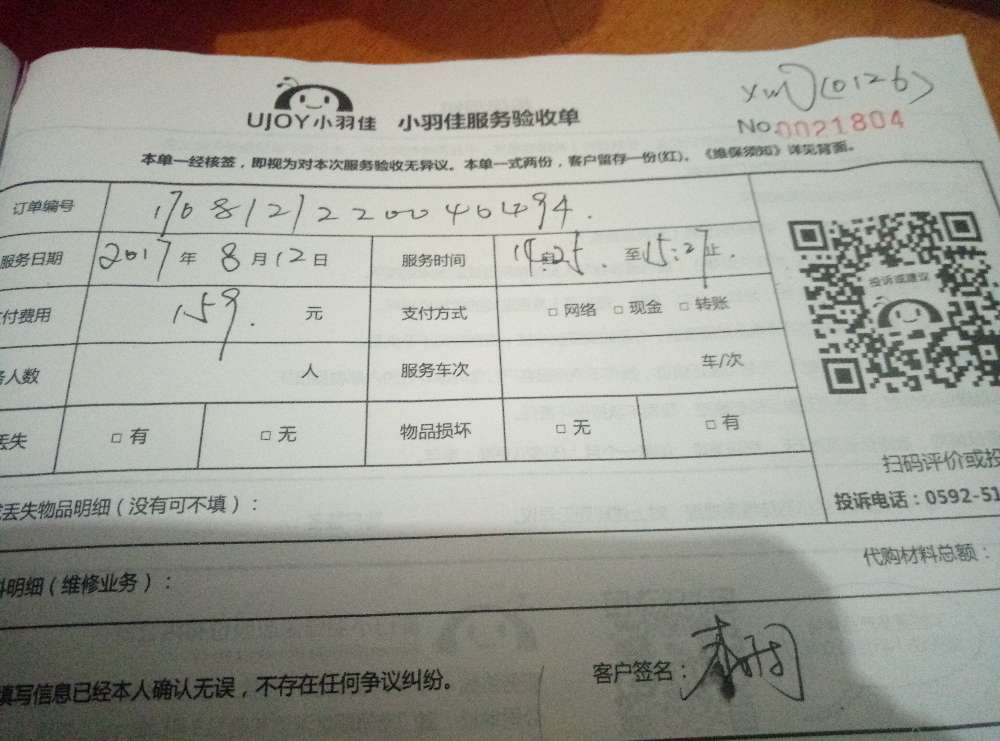 UJOY小羽佳 小羽佳服务验收单
(0126)
No.0021804
本单一经核签，即视为对本次服务验收无异议。本单一式两份，客户留存一份(红)。《维保须知》详见背面。
订单编号 170812122200404494.
服务日期 2017年8月12日 服务时间 14:25. 至15:27止.
付费用 159. 元 支付方式 □ 网络 □ 现金 □ 转账
人数 人 服务车次 车/次
丢失 □ 有 □ 无 物品损坏 □ 无 □ 有
投诉或建议
扫码评价或投
投诉电话：0592-51
丢失物品明细（没有可不填）：
代购材料总额：
料明细（维修业务）：
填写信息已经本人确认无误，不存在任何争议纠纷。
客户签名：